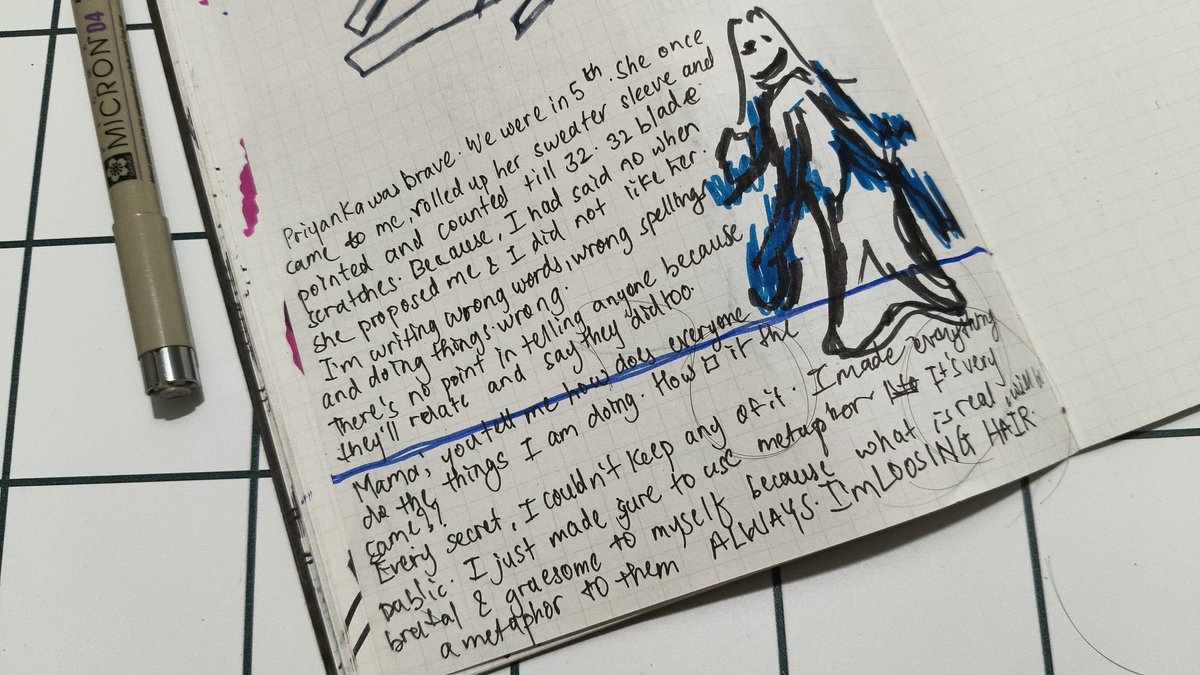 MICRON 04
Priyanka was brave. We were in 5th. She once
came to me, rolled up her sweater sleeve and
pointed and counted till 32. 32 blade
scratches. Because, I had said no when
she proposed me & I did not like her.
I'm writing wrong words, wrong spellings
and doing things wrong.
There's no point in telling anyone because
they'll relate and say they did too.
Mama, you tell me how does everyone
do the things I am doing. How is it the
same??
Every secret, I couldn't keep any of it. I made everything
public. I just made sure to use metaphor It's very
brutal & graesome to myself because what is real, will be
a metaphor to them ALWAYS. I'm LOOSING HAIR.